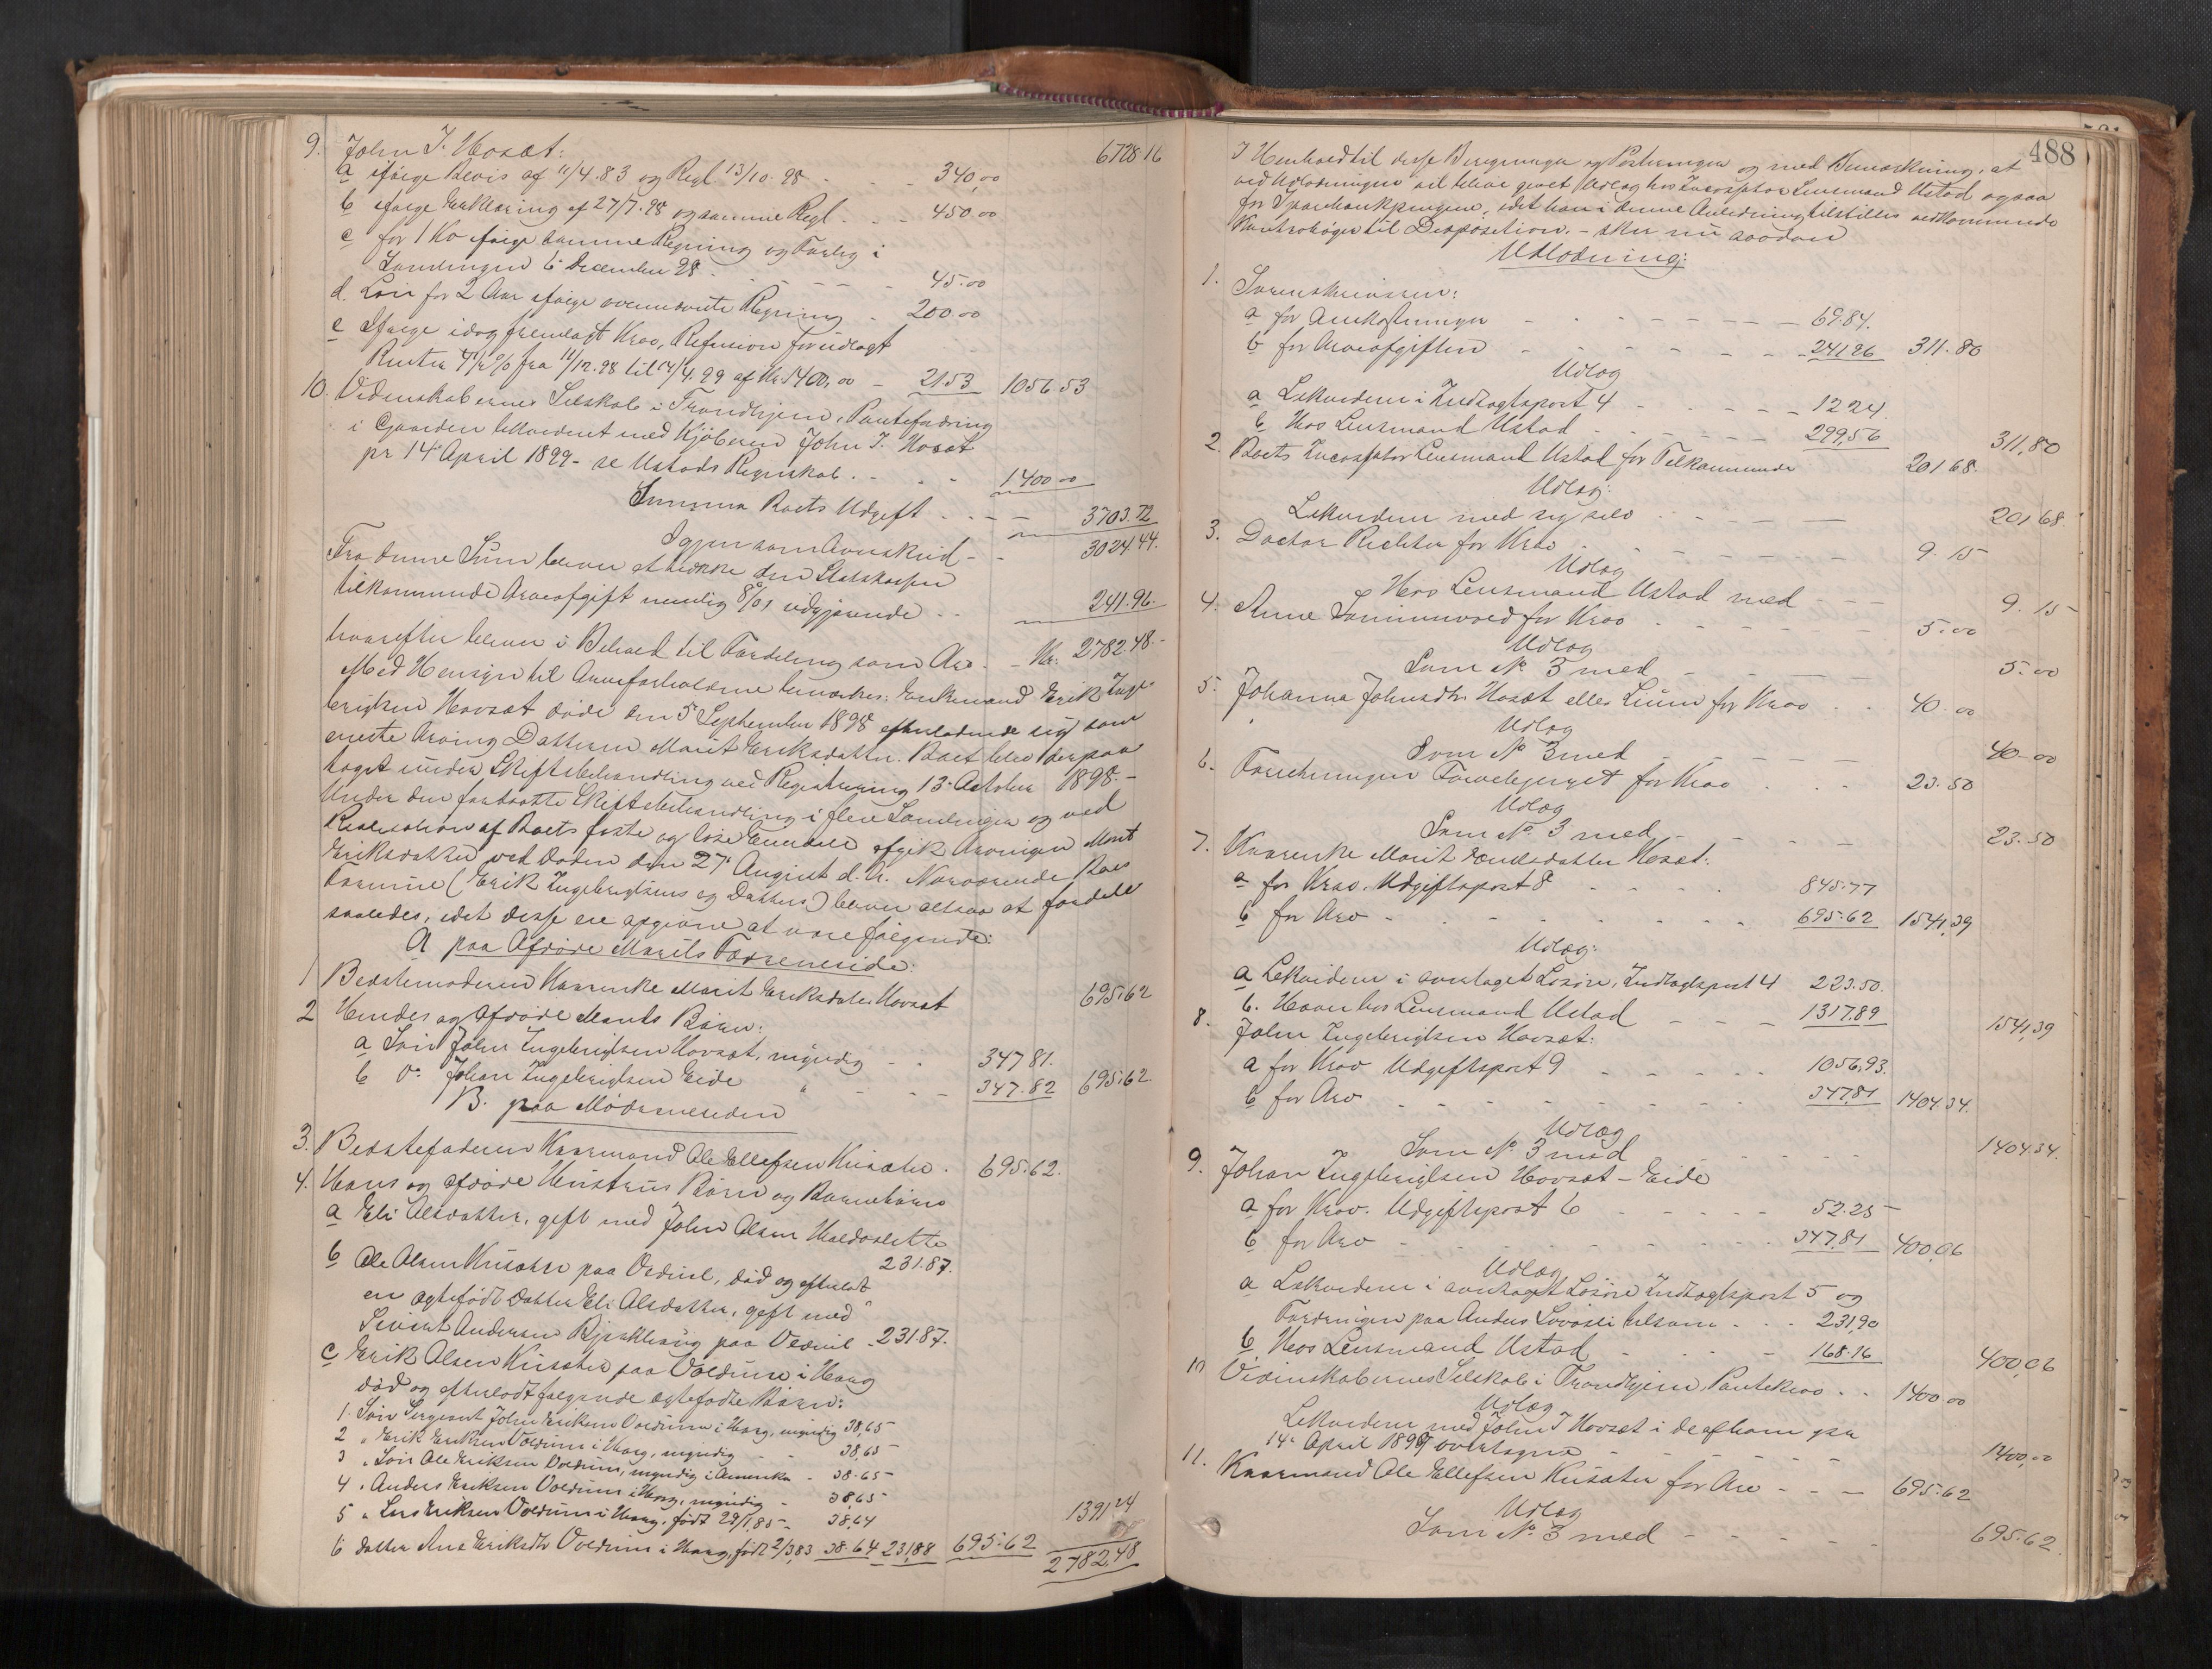 9. John I. Hosæt: 6728 16
a ifølge Bevis af 11/4.83 og Regl 13/10.98 - - - 340,00
b ifølge Erklæring af 27/7.98 og samme Regl. - - 450.00
c for 1 Ko ifølge samme Regning og Forlig i
Samlingen 6 December 98 - - - - 45.00
d. Løn for 2 Aar ifølge ovennævnte Regning - 200.00
e Ifølge idag fremlagt Krav, Refusion for udlagt
Renter 4 1/2 % fra 11/12.98 til 14/4.99 af Kr 1400,00 - 21.53 1056.53
10. Videnskabernes Selskab i Trondhjem, Pantefordring
i Gaarden likvideret med Kjøberen John I. Hosæt
pr 14 April 1899 - se Ustads Regnskab. - - - 1400 00
Summa Boets Udgift - - - 3703.72
Igjen som Overskud - - 3024.44.
Fra denne Sum bliver at trække den Statskassen
tilkommende Arveafgift nemlig 8% udgjørende - - 241.96.
hvorefter bliver i Behold til Fordeling som Arv. - Kr. 2782.48.-
Med Hensyn til Arveforholdene bemærkes: Enkemand Erik Inge-
brigtsen Hovsæt døde den 5 September 1898 efterladende sig som
eneste Arving Datteren Marit Eriksdatter. Boet blev derpaa
taget under Skiftebehandling ved Registrering 13 Oktober 1898.-
Under den fortsatte Skiftebehandling i flere Samlinger og ved
Realisation af Boets faste og løse Eiendele afgik Arvingen Marit
Eriksdatter ved Døden den 27 August d. A. Nærværende Boes
Formue (Erik Ingebrigtsens og Datters) bliver altsaa at fordele
saaledes, idet disse ere opgivne at være følgende:
A paa Afdøde Marits Farsside:
1 Bedstemoderen Kaarenke Marit Eriksdatter Hovsæt 695.62
2 Hendes og Afdøde Mands Børn:
a Søn John Ingebrigtsen Hovsæt, myndig - - 347 81.
b Do. Johan Ingebrigtsen Eide " - - - 347.82 695.62.
B. paa Mødreneside
3. Bedstefaderen Kaarmand Ole Ellefsen Kusæter. 695.62.
4. Hans og afdøde Hustrus Børn og Børnebørn
a Eli Olsdatter, gift med John Olsen Haldosletta
231.87.
b Ole Olsen Kusæter paa Vednil, død og efterlodt
en ægtefødt Datter Eli Olsdatter, gift med
Sivert Andersen paa Vednil - 231.87.
c Erik Olsen Kusæter paa Voldum i Horg
død og efterlodt følgende ægtefødte Børn:
1. Søn Sergeant John Eriksen Voldum i Horg, myndig 38,65
2 " Erik Eriksen Voldum i Horg, myndig - 38,65
3 " Søn Ole Eriksen Voldum, myndig i Amerika - 38.65
4 " Anders Eriksen Voldum i Horg, myndig - 38,65
5 " Lars Eriksen Voldum i Horg, født 29/1.85 - 38,64 1391 24
6 Datter Ane Eriksdtr Voldum i Horg, født 2/3.83 38.64 231,88 695.62 2782.48
488
I Henhold til disse Beregninger og Posteringer og med Bemærkning, at
ved Udlodningen vil blive givet Udlæg hos Incassator Lensmand Ustad ogsaa
for Sparebankpengene, idet han i denne Anledning tilstilles vedkommende
Kontrabøger til Disposition, - sker nu saadan
Udlodning:
1. Sorenskriveren:
a for Omkostninger - - - - - - 69.84.
b for Arveafgiften - - - - - 241 96 311.80
Udlæg
a Likviderer i Indtægtspost 4 - - - - 12 24.
b Hos Lensmand Ustad - - - - - 299,56 311,80
2. Boets Incassator Lensmand Ustad for Tilkommende 201 68.
Udlæg:
Likviderer med sig selv - - - - 201 68.
3. Doctor Richter for Krav - - - - 9.15
Udlæg
Hos Lensmand Ustad med - - - 9.15
4. Anne for Krav - - - - 5.00
Udlæg
Som No 3 med - - - - 5.00
5. Johanna Johnsdtr. Hosæt eller Lium for Krav - - 40.00
Udlæg
Som No 3 med - - - - 40.00
6. Foreningen Farvebjerget for Krav - - - 23.50
Udlæg
Som No 3 med - - - - 23.50
7. Kaarenke Marit Eriksdatter Hosæt:
a for Krav. Udgiftspost 8 - - - - 845.77
b for Arv - - - - - - 695.62 1541,39
Udlæg:
a Likviderer i overtaget Løsøre, Indtægtspost 4 223.50.
b. Haver hos Lensmand Ustad - - - 1317,89 1541,39
8. John Ingebrigtsen Hovsæt:
a for Krav Udgiftspost 9 - - - - 1056,53.
b for Arv - - - - - - - 347,81 1404.34.
Udlæg
Som No 3 med - - - - - 1404.34.
9. Johan Ingebrigtsen Hovsæt - Eide
a for Krav. Udgiftspost 6 - - - - 52.25
b for Arv - - - - - - 347,81 400,06
Udlæg
a Likviderer i overtaget Løsøre Indtægtspost 5 og
Fordringen paa Anders Løvaasli tilsam. - - - 231,90
b Hos Lensmand Ustad - - - - 168.16 400,06
10 Videnskabernes Selskab i Trondhjem, Pantekrav - - 1400.00
Udlæg
Likviderer med John I Hovsæt i de af ham pr
14 April 1899 overtagne - - - - 1400,00
11. Kaarmand Ole Ellefsen Kusæter for Arv - - - 695.62
Udlæg
Som No. 3 med - - - - 695.62.